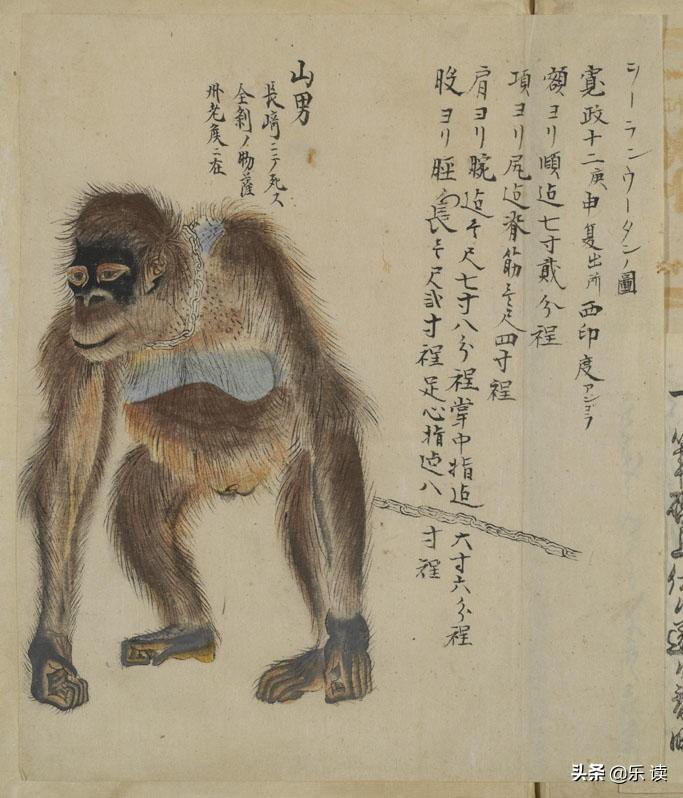 シーランウータンノ圖
寛政十二庚申夏出所西印度アンゴラ
額ヨリ頤迠七寸貳分程
項ヨリ尻迠脊筋壱尺四寸程
肩ヨリ腕迠壱尺七寸八分程掌中指迠六寸六分程
股ヨリ脛 長壱尺弐寸程足心指迠八寸程
山男
長崎ニテ死ス
全剝ノ物薩
州老矦ニ在
头条 @乐读